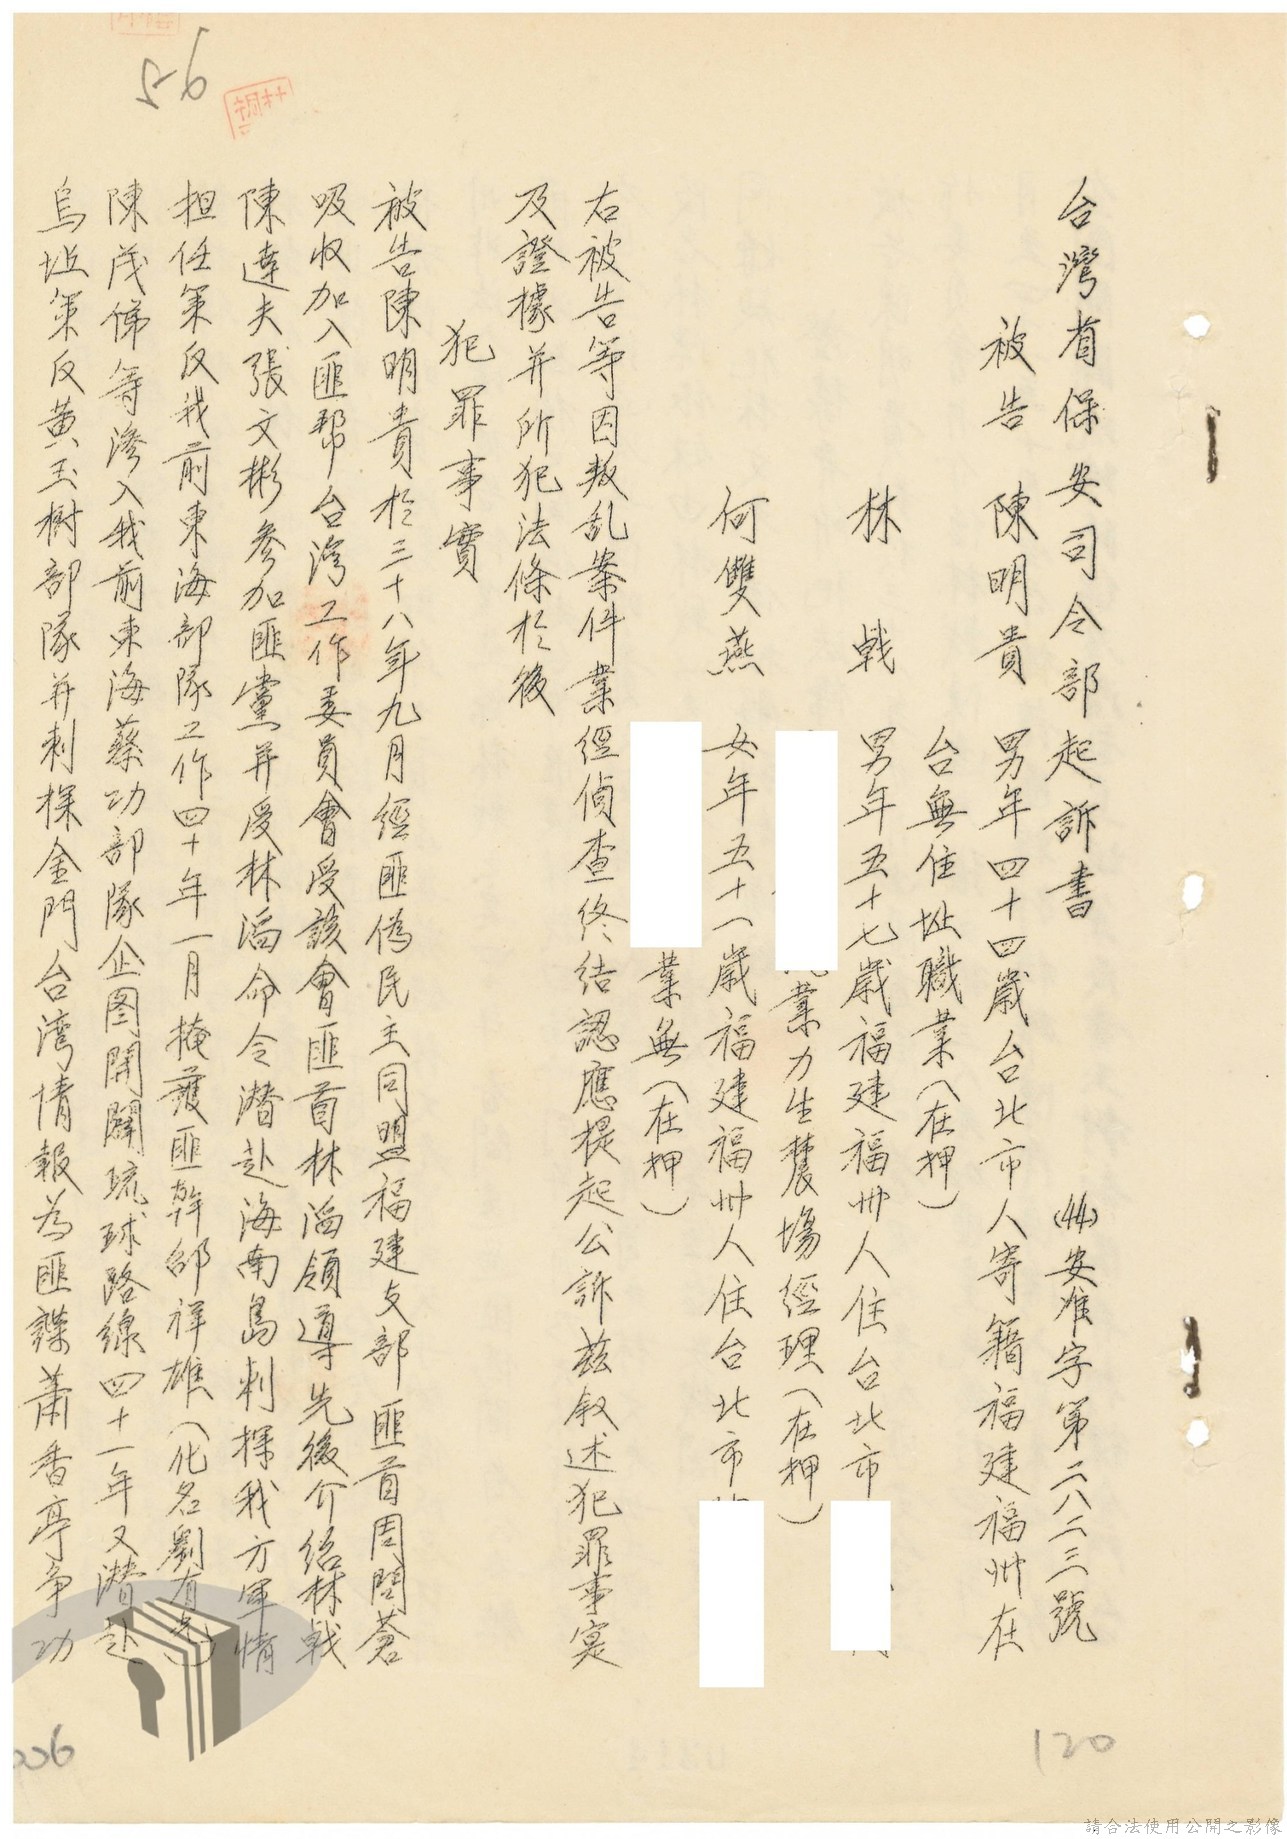 台灣省保安司令部起訴書
(44)安准字第二八二三號
被告　陳明貴　男年四十四歲台北市人寄籍福建福州在
台無住址職業(在押)
林　戟　男年五十七歲福建福州人住台北市
業力生農場經理(在押)
何雙燕　女年五十一歲福建福州人住台北市
業無(在押)
右被告等因叛乱案件業經偵查終結認應提起公訴茲叙述犯罪事实
及證據并所犯法條於後
犯罪事實
被告陳明貴於三十八年九月經匪偽民主同盟福建支部匪首周問蒼
吸收加入匪幇台灣工作委員會受該會匪首林滔領導先後介紹林戟
陳達夫張文彬參加匪黨并受林滔命令潛赴海南島刺探我方軍情
担任策反我前東海部隊工作四十年一月掩護匪幹邵祥雄(化名劉有光)
陳茂俤等滲入我前東海蔡功部隊企图開闢琉球路線四十一年又潛赴
烏坵策反黄玉樹部隊并刺探金門台湾情報為匪諜蕭香亭爭功
56
120
006
請合法使用公開之影像